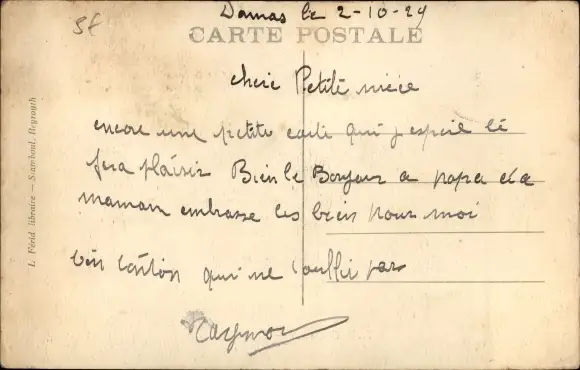 5f
Damas le 2-10-29
CARTE POSTALE
cheré Petite niéce
encore une petite carte qui j espere te
fera plaisir Bien le Bonjour a papa et a
maman embrasse les bien pour moi
ton tonton qui ne t'oublie pas
Raymon
L. Férid libraire — Stamboul, Beyrouth